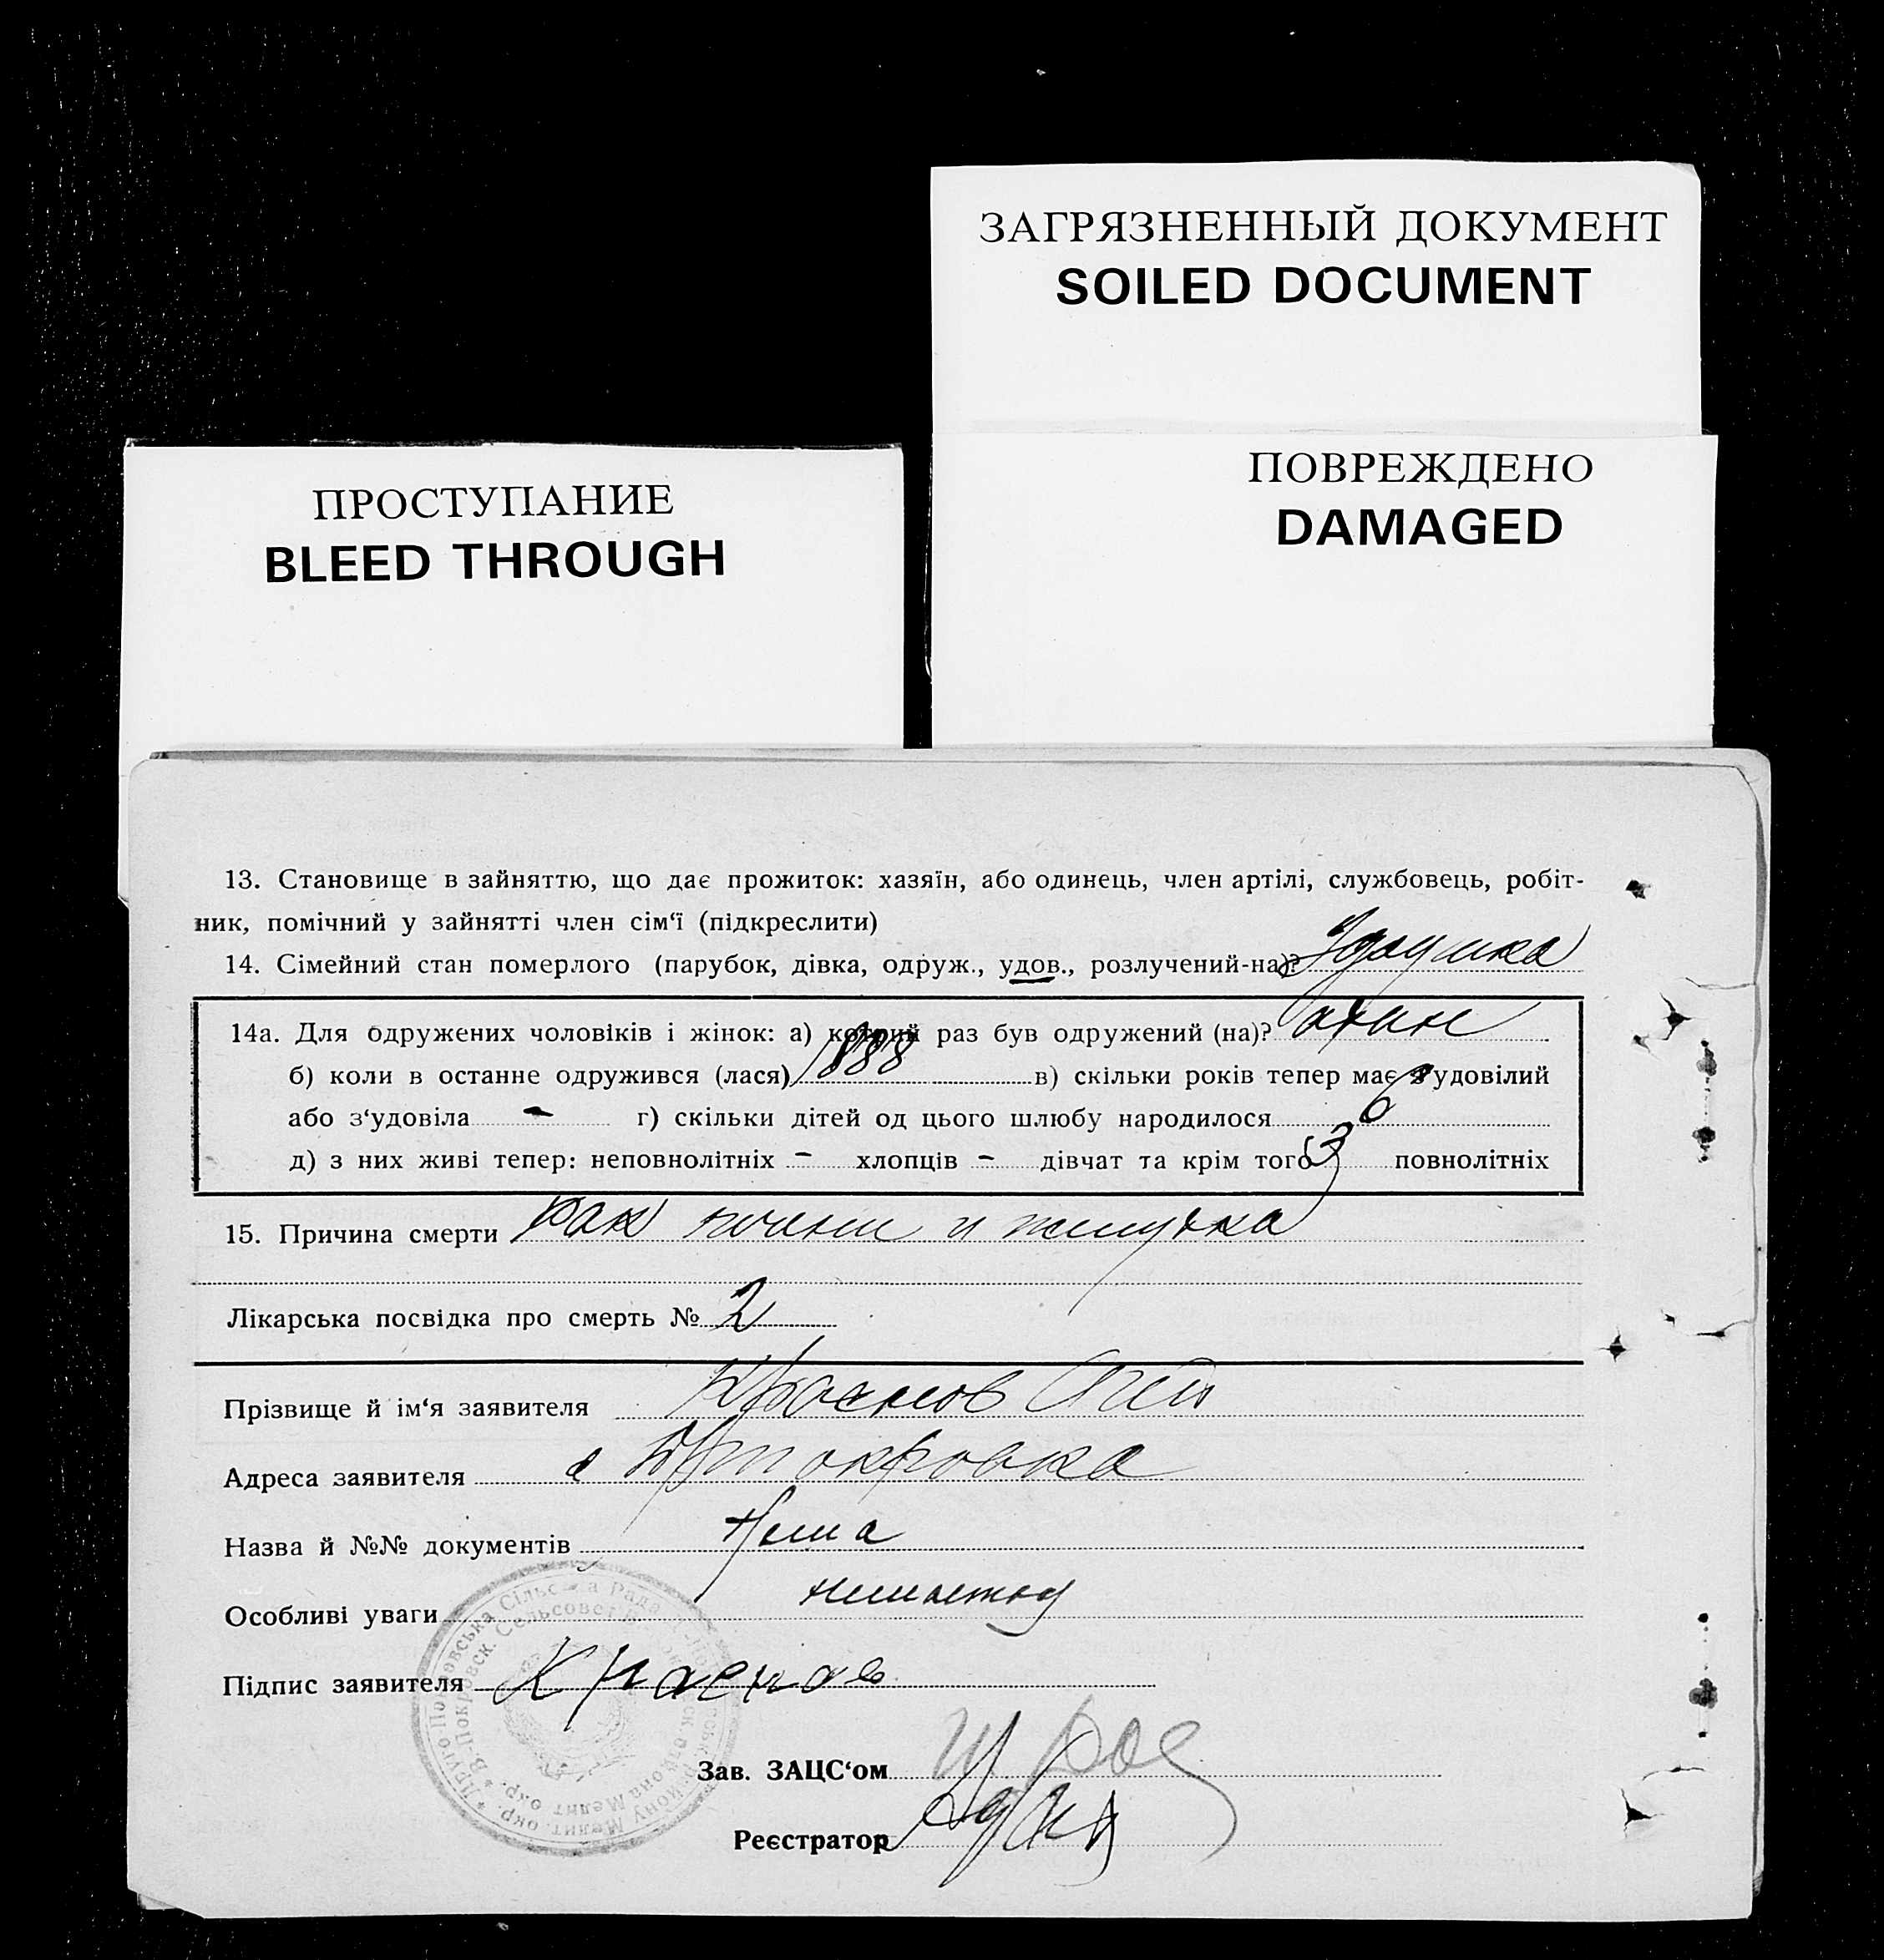 ЗАГРЯЗНЕННЫЙ ДОКУМЕНТ
SOILED DOCUMENT
ПРОСТУПАНИЕ
BLEED THROUGH
ПОВРЕЖДЕНО
DAMAGED
13. Становище в зайняттю, що дає прожиток: хазяїн, або одинець, член артілі, службовець, робіт-
ник, помічний у зайнятті член сім‘ї (підкреслити)
14. Сімейний стан померлого (парубок, дівка, одруж., удов., розлучений-на)?
14а. Для одружених чоловіків і жінок: а) котрий раз був одружений (на)? один
б) коли в останне одружився (лася) 1888 в) скільки років тепер має з‘удовілий
або з‘удовіла - г) скільки дітей од цього шлюбу народилося 6
д) з них живі тепер: неповнолітніх - хлопців - дівчат та крім того 3 повнолітніх
15. Причина смерти Рак печени и желудка
Лікарська посвідка про смерть № 2
Прізвище й ім‘я заявителя Краснов
Адреса заявителя с Вр покровка
Назва й №№ документів Нема
Особливі уваги
Підпис заявителя Краснов
Зав. ЗАЦС‘ом
Реєстратор